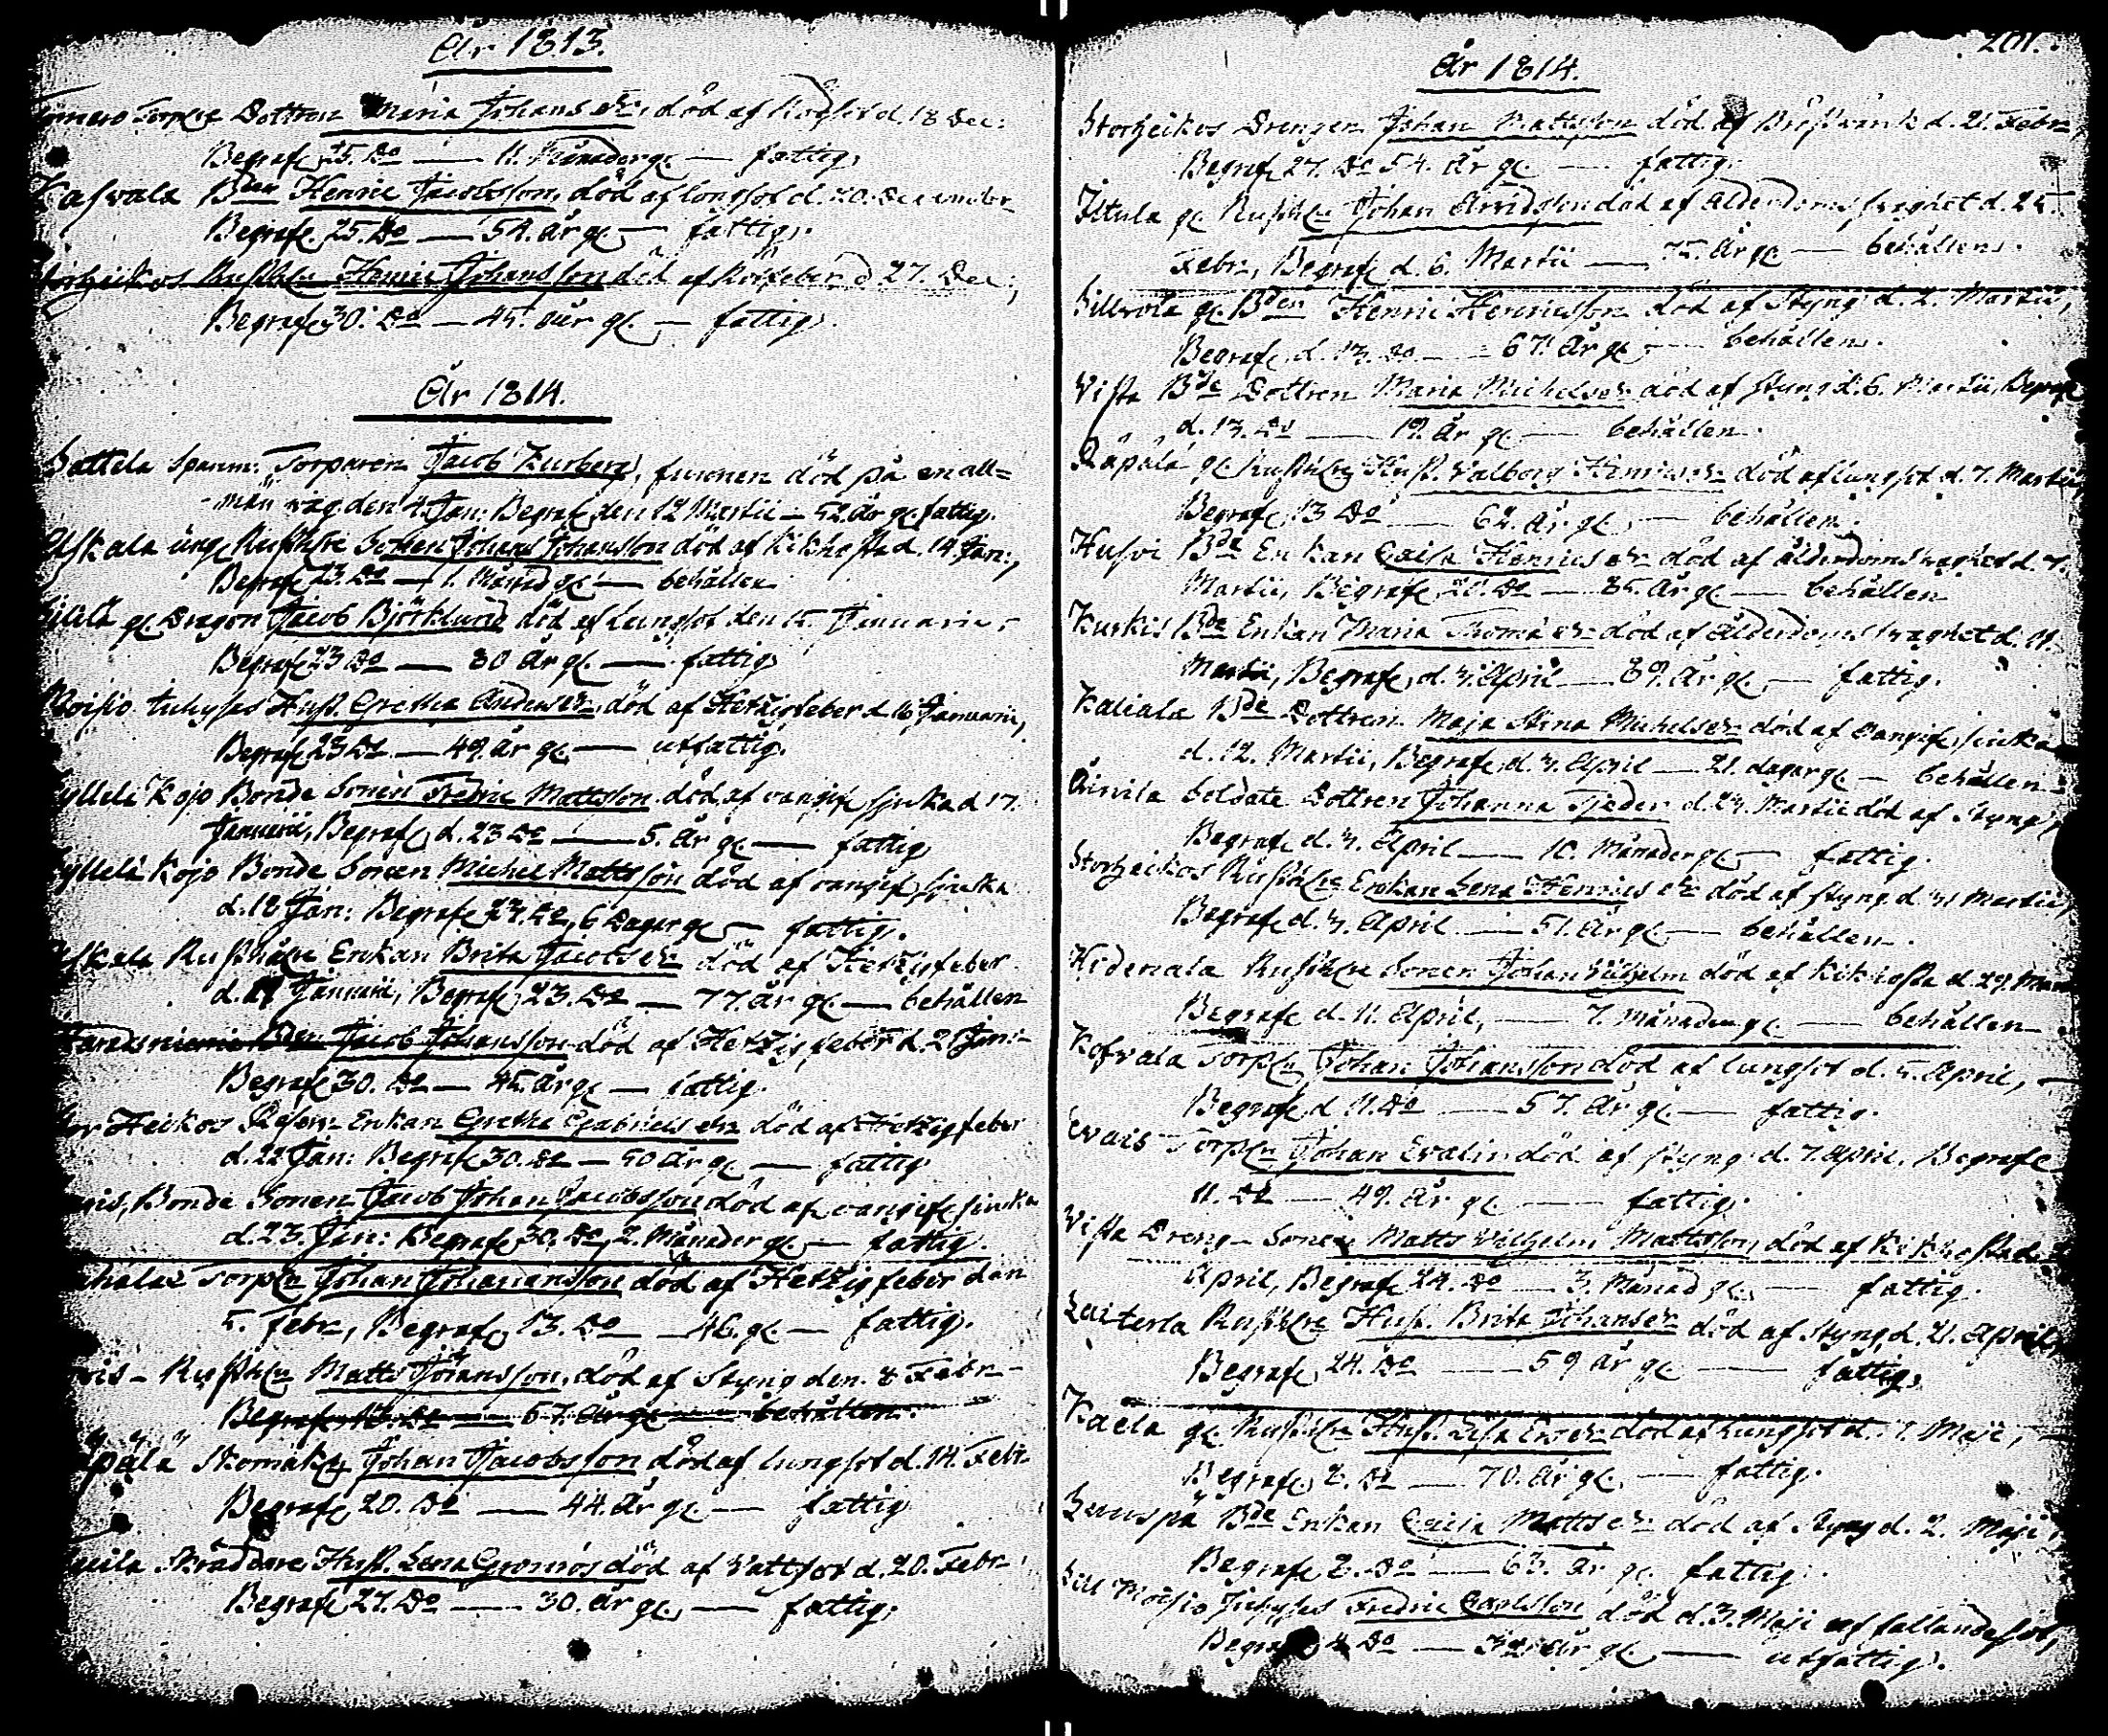 År 1813.
Torp: Dottren Maria Johans dr, död af d. 18 Dec:
Begrafn. 25. Do — 11. Månader gl. — fattig.
Kafvala Bden Henric Jacobsson, död af lungsot d. 20. December
Begrafn. 25. Do — 54. år gl. — fattig.
Storheikos Rusthln Henric Johansson död af Rötfeber d 27. Dec;
Begrafn. 30. Do — 45. år gl. — fattig.
År 1814.
Sattela Spanm: Torparen Jacob Zurberg, funnen död på en all=
män väg den 4. Jan: Begrafn den 12 Martii — 52. år gl. fattig.
Rusthlre Sonen Johans Johansson död af Kikhosta d. 14 Jan:,
Begrafn 23. Do — 1. Månad gl. — behållen
gl. Dragon Jacob Björklund död af Lungsot den 15. Januarii,
Begrafn 23 Do — 80 år gl. — fattig
Moisio Inhyses Hust. Gretha Anders dr, död af Hetzigfeber d. 16 Januarii,
Begrafn 23 Do — 49. år gl. — utfattig.
Kylleli Kojo Bonde Sonen Fredric Mattsson död af vangif. sjuka d 17.
Januarii, Begrafn d. 23 Do — 5. år gl. — fattig
Kylleli Kojo Bonde Sonen Michel Mattsson död af vangif. sjuka
d. 18 Jan: Begrafn 23. Do, 6 Dagar gl. — fattig.
Rusthålre Enkan Brita Jacobs dr död af Hetzigfeber
d. Januarii, Begrafn 23. Do — 77. år gl. — behållen
Jacob Johansson död af Hetzig feber d. 21 Jan:
Begrafn 30. Do — 45. år gl. — fattig.
Stor Heikos Enkan Gretha Gabriels dr död af Hetzigfeber
d. 22 Jan: Begrafn 30. Do — 50 år gl. — fattig
Bonde Sonen Jacob Johan Jacobsson död af vangif. sjuka
d. 23. Jan: Begrafn 30. Do, 2. Månader gl. — fattig.
Torpn Johan Johansson död af Hetzigfeber den
5. Febr, Begrafn 13. Do — 46. gl. — fattig.
Rusthln Matts Johansson, död af Styng den 8 Febr —
Begrafn 13. Do — 67. år gl. — behållen.
Räpälä Skomakn Johan Jacobsson död af lungsot d. 14. Febr.
Begrafn 20. Do — 44. år gl. — fattig
Skräddare Hust. Lena Gromos död af Vattsot d. 20. Febr.
Begrafn 27. Do — 30. år gl. — fattig;
201.
År 1814.
Storheikos Drengen Johan Mattsson död af Bröstvärk d. 21. Febr
Begrafn 27. Do 54. år gl. — fattig.
Istula gl. Rusthln Johan Arvidsson död af ålderdoms svaghet d. 25.
Febr, Begrafn d. 6. Martii — 75. år gl. — behållen.
Sillvola gl. Bden Henric Henricsson död af Styng d. 2. Martii,
Begrafn d. 13. Do — 67. år gl. — behållen.
Vista Bde Dottren Maria Michels dr död af styng d. 6. Martii, Begrafn
d. 13. Do — 19. år gl. — behållen.
Räpälä gl. Rusthlre Hust. Valborg Henrics dr död af lungsot d. 7. Martii,
Begrafn 13 Do — 62. år gl. — behållen.
Husvi Bde Enkan Caisa Henrics dr död af ålderdoms svaghet d. 7.
Martii, Begrafn 20. Do — 85. år gl. — behållen
Kurkis Bde Enkan Maria Thoma dr död af ålderdoms svaghet d. 11.
Martii, Begrafn d. 3. April — 89. år gl. — fattig.
Kaliala Bde Dottren Maja Stina Michels dr död af vangif. sjuka
d. 12. Martii, Begrafn d. 3. April — 21. dagar gl. — behållen.
Soldats Dottren Johanna Tjeder d. 23. Martii död af styng,
Begrafn d. 3. April — 10. Månader gl. — fattig.
Storheikos Rusthlre Enkan Lena Henrics dr död af styng d. 31 Martii,
Begrafn d. 3. April — 51. år gl. — behållen.
Hidenala Rusthlre Sonen Johan Wilhelm död af Kikhosta d. 29. Mart
Begrafn d. 11. April, — 7. Månader gl. — behållen
Kofvala Torpn Johan Johansson död af lungsot d. 5. April, —
Begrafn d 11. Do — 57. år gl. — fattig.
Evais Torpn Johan Evalin död af styng d. 7. April, Begrafn
11. Do — 49. år gl. — fattig.
Vista Dreng- Sonen Matts Wilhelm Mattsson, död af Kikhosta d.
April, Begrafn 24. Do — 3. Månad gl. — fattig.
Laiterla Rusthlre Hust. Brita Johans dr död af styng d. 21. April,
Begrafn 24. Do — 59 år gl. — fattig,
Kaela gl. Rusthlre Hust. Lisa Ers dr död af Lungsot d. 1. Maji, —
Begrafn 8. Do — 70. år gl. — fattig.
Bde Enkan Caisa Matts dr död af styng d. 2. Maji,
Begrafn 8. Do — 63. år gl. fattig.
Lill Moisio Inhyses Fredric Carlsson död d. 3. Maji af fallandesot,
Begrafn 8 Do — år gl. — utfattig.